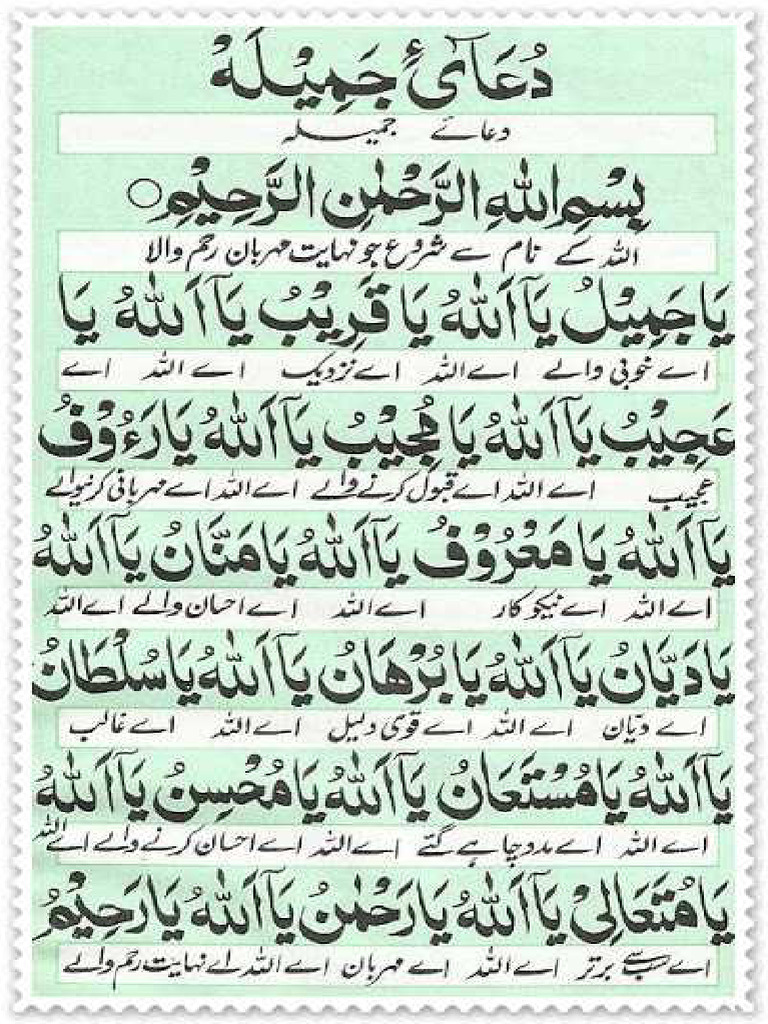 دُعَائ جَمِيْلَهْ
دعائے جمیلہ
بِسْمِ اللهِ الرَّحْمٰنِ الرَّحِيْمِ ○
اللہ کے نام سے شروع جو نہایت مہربان رحم والا
يَا جَمِيْلُ يَآ اَللهُ يَا قَرِيْبُ يَآ اَللهُ يَا
اے خوبی والے اے اللہ اے نزدیک اے اللہ اے
عَجِيْبُ يَآ اَللهُ يَا مُجِيْبُ يَآ اَللهُ يَا رَءُوْفُ
عجیب اے اللہ اے قبول کرنے والے اے اللہ اے مہربانی کرنیوالے
يَآ اَللهُ يَا مَعْرُوْفُ يَآ اَللهُ يَا مَنَّانُ يَآ اَللهُ
اے اللہ اے نیکو کار اے اللہ اے احسان والے اے اللہ
يَا دَيَّانُ يَآ اَللهُ يَا بُرْهَانُ يَآ اَللهُ يَا سُلْطَانُ
اے دیّان اے اللہ اے قوی دلیل اے اللہ اے غالب
يَآ اَللهُ يَا مُسْتَعَانُ يَآ اَللهُ يَا مُحْسِنُ يَآ اَللهُ
اے اللہ اے مدد چاہے گئے اے اللہ اے احسان کرنے والے اے اللہ
يَا مُتَعَالِيْ يَآ اَللهُ يَا رَحْمٰنُ يَآ اَللهُ يَا رَحِيْمُ
اے سب سے برتر اے اللہ اے مہربان اے اللہ اے نہایت رحم والے